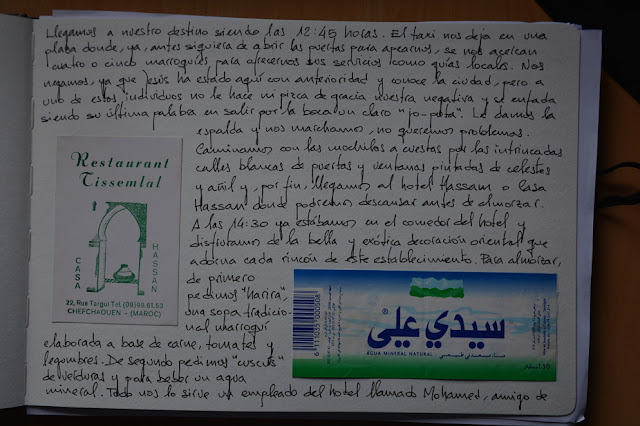 Llegamos a nuestro destino siendo las 12:45 horas. El taxi nos deja en una
plaza donde, ya, antes siquiera de abrir las puertas para apearnos, se nos acercan
cuatro o cinco marroquíes para ofrecernos sus servicios como guías locales. Nos
negamos, ya que Jesús ha estado aquí con anterioridad y conoce la ciudad, pero a
uno de estos individuos no le hace ni pizca de gracia nuestra negativa y se enfada
siendo su última palabra en salir por la boca un claro "jo-puta". Le damos la
espalda y nos marchamos, no queremos problemas.
Caminamos con las mochilas a cuestas por las intrincadas
calles blancas de puertas y ventanas pintadas de celestes
y añil y, por fin, llegamos al hotel Hassam o Casa
Hassan donde podremos descansar antes de almorzar.
A las 14:30 ya estábamos en el comedor del hotel y
disfrutamos de la bella y exótica decoración oriental que
adorna cada rincón de este establecimiento. Para almorzar,
de primero
pedimos "harira",
una sopa tradicio-
nal marroquí
elaborada a base de carne, tomates y
legumbres. De segundo pedimos "cuscus"
de verduras y para beber un agua
mineral. Todo nos lo sirve un empleado del hotel llamado Mohamed, amigo de
Restaurant
Tissemlal
CASA
HASSAN
22, Rue Targui Tel. (09)99.61.53
CHEFCHAOUEN - (MAROC)
سيدي علي
®
AGUA MINERAL NATURAL
مـاء معدني طبيعي